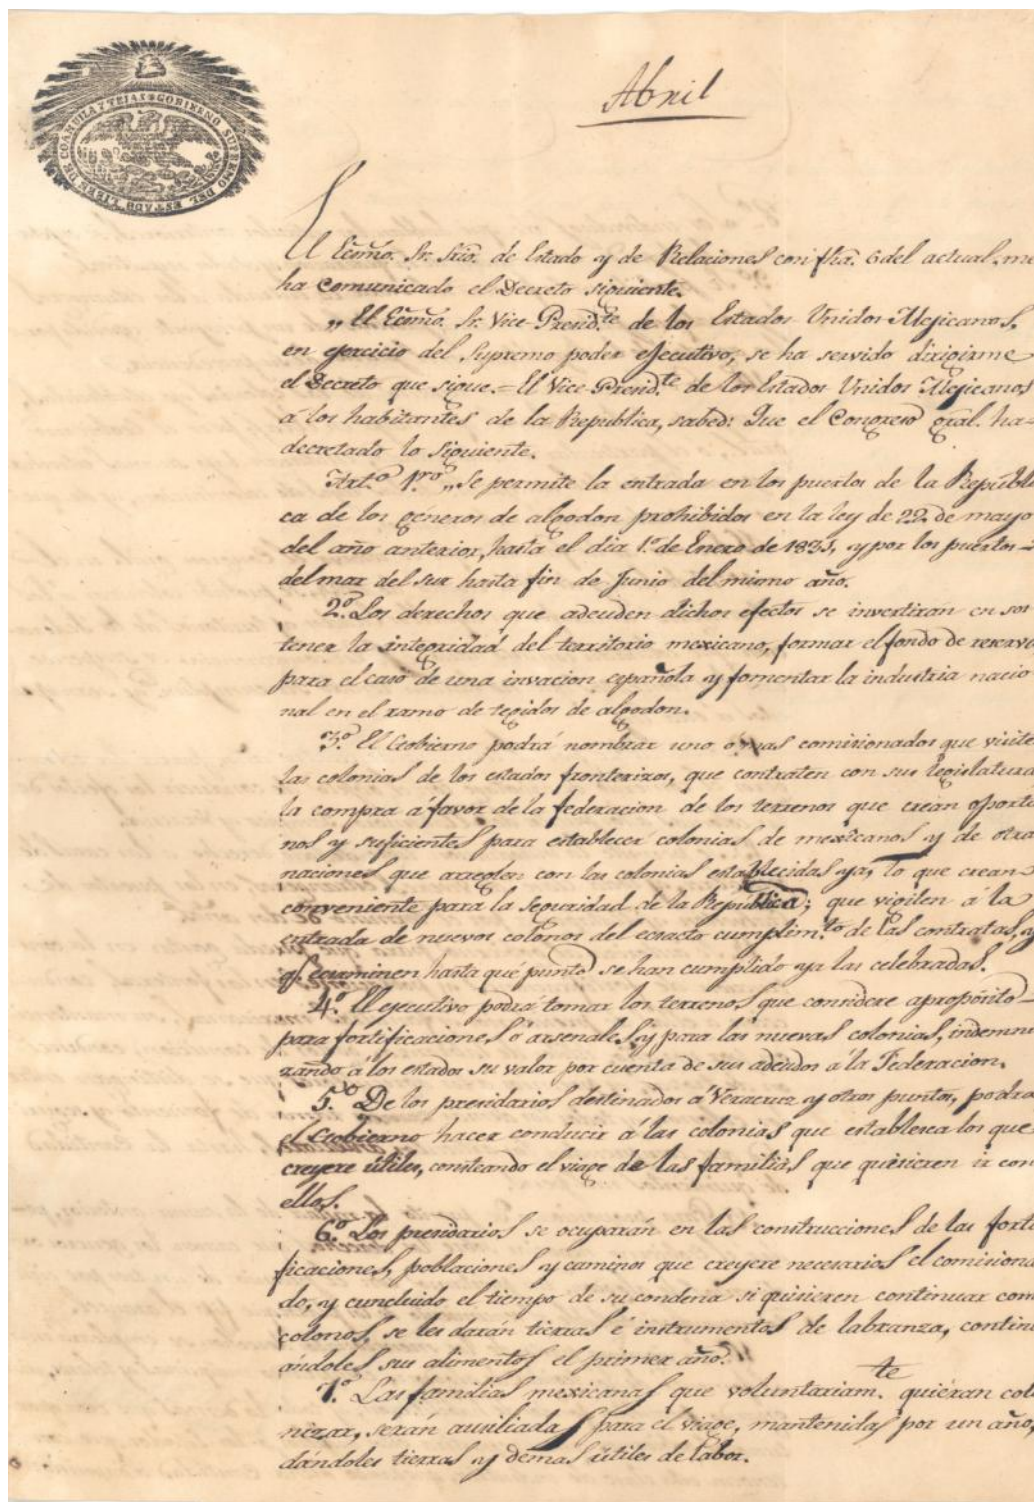 GOBIERNO SUPREMO DEL ESTADO LIBRE DE COAHUILA Y TEJAS
Abril
El Ecsmo. Sr. Srio. de Estado y de Relaciones con fha. 6 del actual, me
ha comunicado el Decreto siguiente.
„ El Ecsmo. Sr. Vice-Presid.te de los Estados Unidos Mejicanos,
en ejercicio del Supremo poder ejecutivo, se ha servido dirigirme
el Decreto que sigue.= El Vice-Presid.te de los Estados Unidos Mejicanos
á los habitantes de la Republica, sabed: Que el Congreso gral. ha-
decretado lo siguiente.
Art.o 1.ro „ Se permite la entrada en los puertos de la Repúbli
ca de los géneros de algodon prohibidos en la ley de 22 de mayo
del año anterior, hasta el dia 1.o de Enero de 1831, y por los puertos-
del mar del sur hasta fin de Junio del mismo año.
2.o Los derechos que adeuden dichos efectos se invertiran en sos
tener la integridad del territorio mexicano, formar el fondo de reserva
para el caso de una invacion española y fomentar la industria nacio
nal en el ramo de tegidos de algodon.
3.o El Gobierno podrá nombrar uno o mas comisionados que visite
las colonias de los estados fronterizos, que contraten con sus legislatura
la compra á favor de la federacion de los terrenos que crean oportu
nos y suficientes para establecer colonias de mexicanos y de otra
naciones que arreglen con las colonias establecidas ya, lo que crean
conveniente para la seguridad de la República; que vigilen á la
entrada de nuevos colonos del ecsacto cumplim.to de las contratas, y
q.e ecsaminen hasta qué punto se han cumplido ya las celebradas.
4.o El ejecutivo podrá tomar los terrenos que considere apropósito-
para fortificaciones ó arsenales y para las nuevas colonias, indemni
zando a los estados su valor por cuenta de sus adeudos a la Federacion.
5.o De los presidarios destinados á Veracruz y otros puntos, podra
el Gobierno hacer conducir á las colonias que establesca los que
creyere útiles, costeando el viage de las familias que quisieren ir con
ellos.
6.o Los presidarios se ocuparán en las construcciones de las forti
ficaciones, poblaciones y caminos que creyere necesarios el comisiona
do, y concluido el tiempo de su condena si quisieren continuar com
colonos, se les darán tierras é instrumentos de labranza, continu
ándoles sus alimentos el primer año.
7.o Las familias mexicanas que voluntariam.te quieran colo
nizar, serán auxiliadas para el viage, mantenidas por un año,
dándoles tierras y demas útiles de labor.